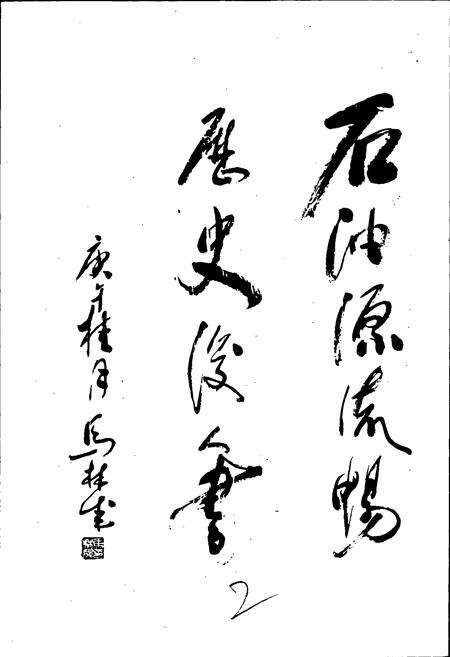 石油源流暢
歷史後人書
庚午桂月馬林成
2